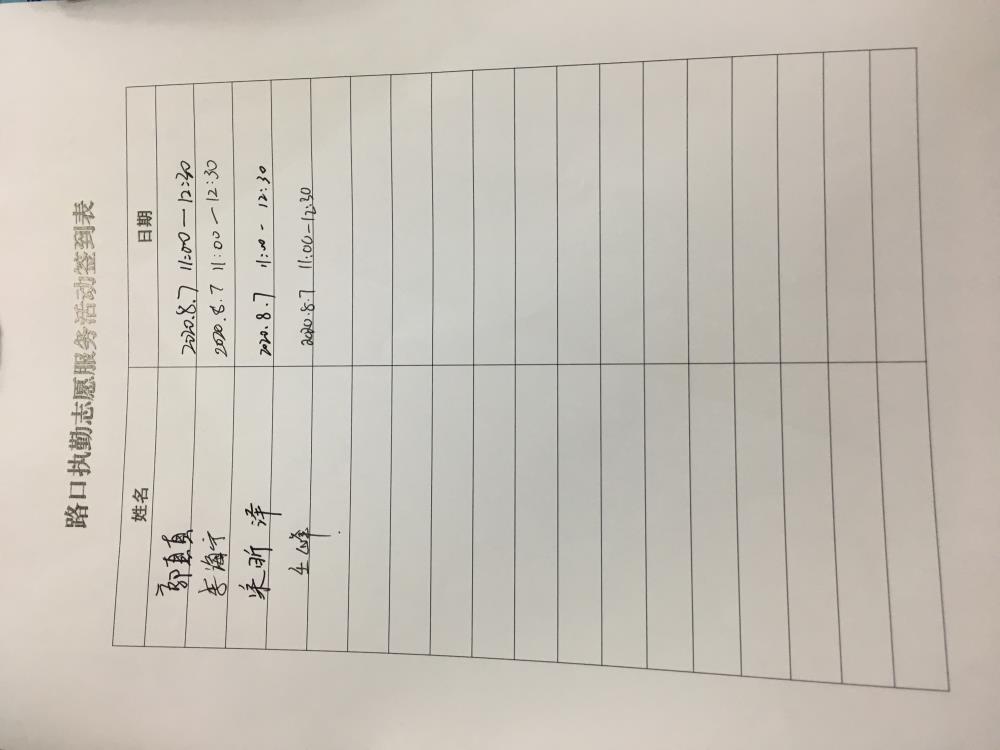 路口执勤志愿服务活动签到表
姓名 日期
郭真真 2020.8.7 11:00—12:30
李海宁 2020.8.7 11:00—12:30
昕泽 2020.8.7 11:00-12:30
峰 2020.8.7 11:00-12:30